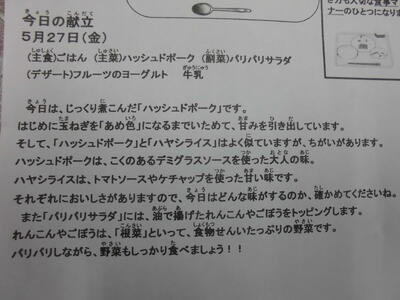 今日の献立
5月27日(金)
(主食)ごはん (主菜)ハッシュドポーク (副菜)パリパリサラダ
(デザート)フルーツのヨーグルト 牛乳
今日は、じっくり煮こんだ「ハッシュドポーク」です。
はじめに玉ねぎを「あめ色」になるまでいためて、甘みを引き出しています。
そして、「ハッシュドポーク」と「ハヤシライス」はよく似ていますが、ちがいがあります。
ハッシュドポークは、こくのあるデミグラスソースを使った大人の味。
ハヤシライスは、トマトソースやケチャップを使った甘い味です。
それぞれにおいしさがありますので、今日はどんな味がするのか、確かめてくださいね。
また「パリパリサラダ」には、油で揚げたれんこんやごぼうをトッピングします。
れんこんやごぼうは、「根菜」といって、食物せんいたっぷりの野菜です。
パリパリしながら、野菜もしっかり食べましょう!!
ナーのひとつになりま